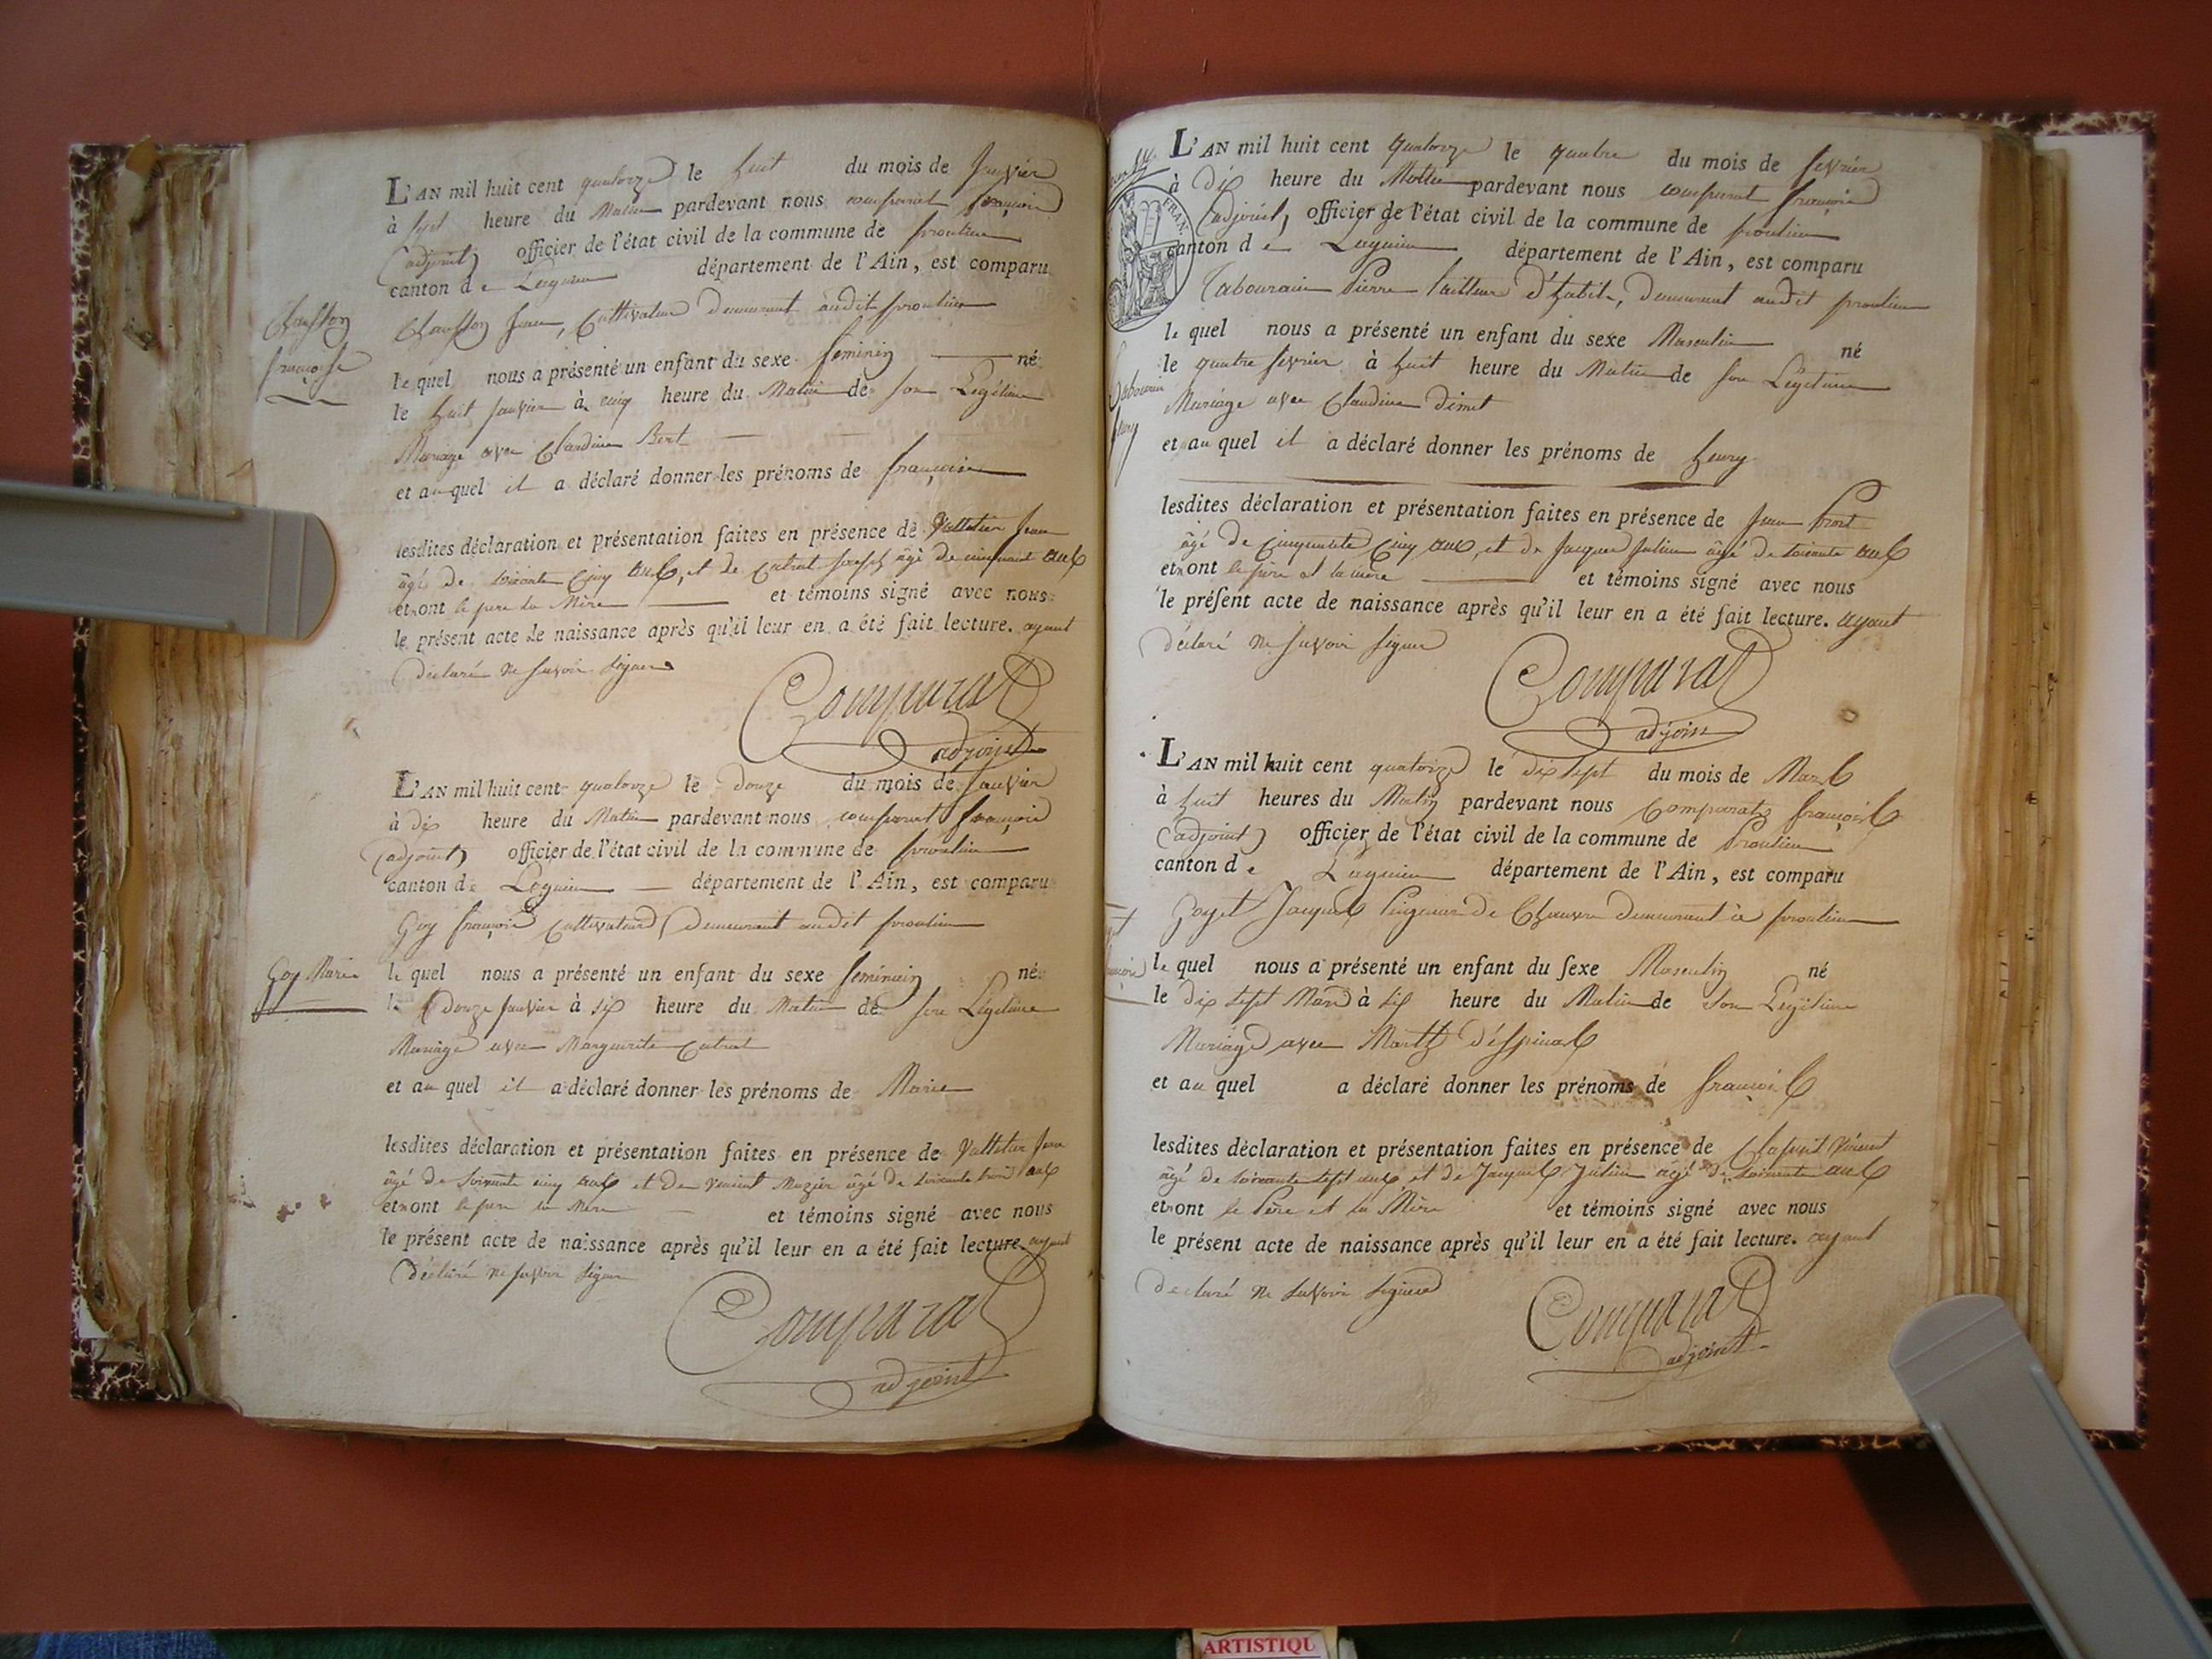 Chanston
françoise
L'AN mil huit cent quatorze le huit du mois de Janvier
à sept heure du Matin pardevant nous comparat françois
(adjoint) officier de l'état civil de la commune de proulieu
canton de Lagnieu département de l'Ain, est comparu
Jean, Cultivateur demeurant audit proulieu
le quel nous a présenté un enfant du sexe feminin né
le huit Janvier à cinq heure du Matin de son Légitime
Mariage avec Claudine Bert
et au quel il a déclaré donner les prénoms de françoise
lesdites déclaration et présentation faites en présence de Vallettier Jean
âgé de soixante cinq ans, et de Cutrat Joseph âgé de cinquante ans
et ont le père la Mère et témoins signé avec nous
le présent acte de naissance après qu'il leur en a été fait lecture. ayant
déclaré ne savoir signer
Comparat
adjoint
L'AN mil huit cent quatorze le douze du mois de Janvier
à dix heure du Matin pardevant nous comparat françois
(adjoint) officier de l'état civil de la commune de proulieu
canton de Lagnieu département de l'Ain, est comparu
Goy françois Cultivateur demeurant audit proulieu
Goy Marie
le quel nous a présenté un enfant du sexe feminin né
le douze Janvier à six heure du Matin de son Légitime
Mariage avec Marguerite Cutrat
et au quel il a déclaré donner les prénoms de Marie
lesdites déclaration et présentation faites en présence de Jean
âgé de soixante cinq ans et de Vincent âgé de soixante trois ans
et ont le père la Mère et témoins signé avec nous
le présent acte de naissance après qu'il leur en a été fait lecture ayant
déclaré ne savoir signer
Comparat
adjoint
FRAN.
L'AN mil huit cent quatorze le quatre du mois de fevrier
à dix heure du Mattin pardevant nous comparat françois
(adjoint) officier de l'état civil de la commune de proulieu
canton de Lagnieu département de l'Ain, est comparu
Tabourain Pierre tailleur d'habit, demeurant audit proulieu
le quel nous a présenté un enfant du sexe Masculin né
le quatre fevrier à huit heure du Matin de son Légitime
Mariage avec Claudine dimet
et au quel il a déclaré donner les prénoms de henry
lesdites déclaration et présentation faites en présence de Jean
âgé de cinquante cinq ans, et de Jacques Julien âgé de soixante ans
et ont le père et la mère et témoins signé avec nous
le présent acte de naissance après qu'il leur en a été fait lecture. ayant
déclaré ne savoir signer
Comparat
adjoint
L'AN mil huit cent quatorze le dix sept du mois de Mars
à huit heures du Matin pardevant nous Comparat françois
(adjoint) officier de l'état civil de la commune de Proulieu
canton de Lagnieu département de l'Ain, est comparu
Goyet Jacques Peigneur de Chanvre demeurant à proulieu
le quel nous a présenté un enfant du sexe Masculin né
le dix sept Mars à six heure du Matin de son Légitime
Mariage avec Marthe
et au quel a déclaré donner les prénoms de françois
lesdites déclaration et présentation faites en présence de
âgé de soixante sept ans et de Jacques Julien agé de soixante ans
et ont le Père et la Mère et témoins signé avec nous
le présent acte de naissance après qu'il leur en a été fait lecture. ayant
declaré ne savoir signer
Comparat
adjoint
ARTISTIQU